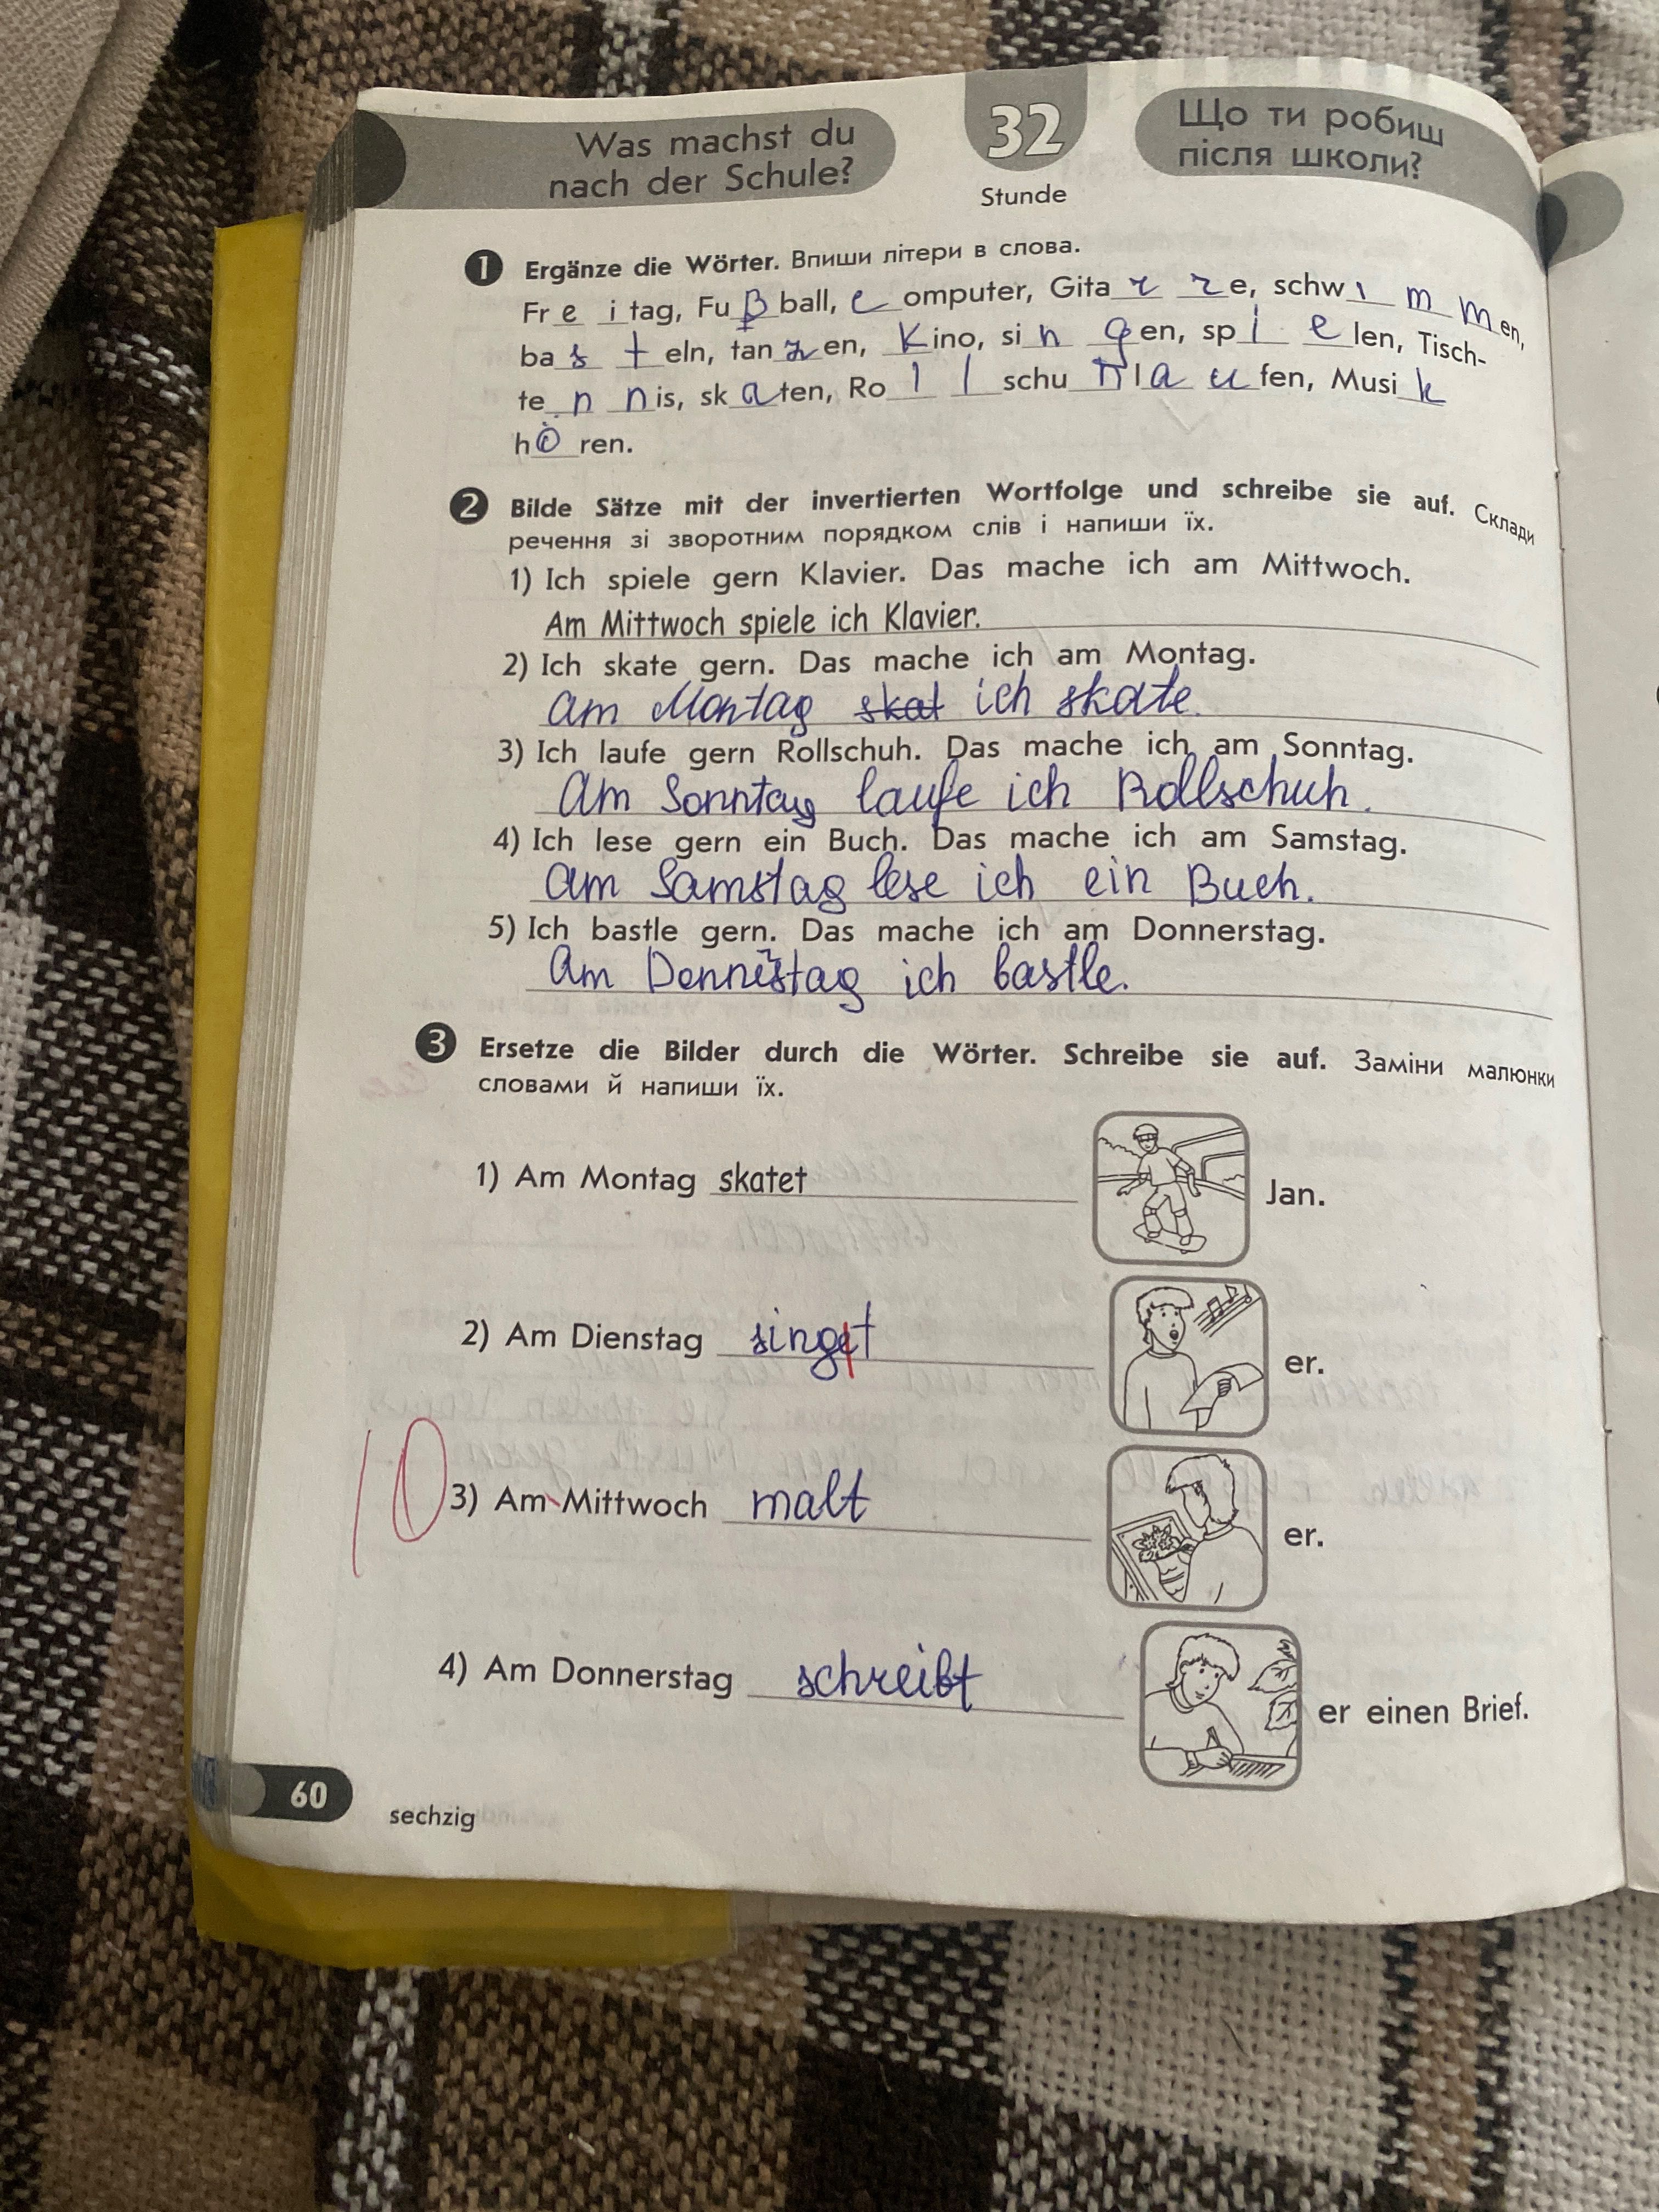 Was machst du
nach der Schule?
32
Stunde
Що ти робиш
після школи?
1 Ergänze die Wörter. Впиши літери в слова.
Fr e i tag, Fu ß ball, C omputer, Gita r r e, schw i m m en,
ba s t eln, tan z en, K ino, si n g en, sp i e len, Tisch-
te n n is, sk a ten, Ro l l schu h l a u fen, Musi k
h ö ren.
2 Bilde Sätze mit der invertierten Wortfolge und schreibe sie auf. Склади
речення зі зворотним порядком слів і напиши їх.
1) Ich spiele gern Klavier. Das mache ich am Mittwoch.
Am Mittwoch spiele ich Klavier.
2) Ich skate gern. Das mache ich am Montag.
Am Montag skat ich skate.
3) Ich laufe gern Rollschuh. Das mache ich am Sonntag.
Am Sonntag laufe ich Rollschuh.
4) Ich lese gern ein Buch. Das mache ich am Samstag.
Am Samstag lese ich ein Buch.
5) Ich bastle gern. Das mache ich am Donnerstag.
Am Donnerstag ich bastle.
3 Ersetze die Bilder durch die Wörter. Schreibe sie auf. Заміни малюнки
словами й напиши їх.
1) Am Montag skatet Jan.
2) Am Dienstag singet er.
10
3) Am Mittwoch malt er.
4) Am Donnerstag schreibt er einen Brief.
60
sechzig